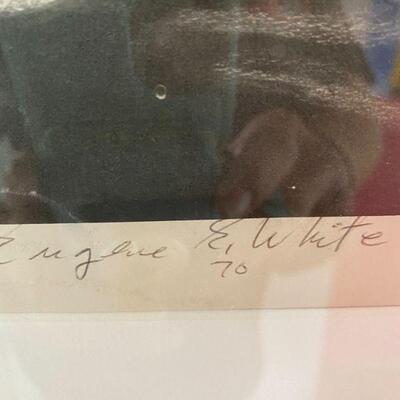 Eugene E. White
70